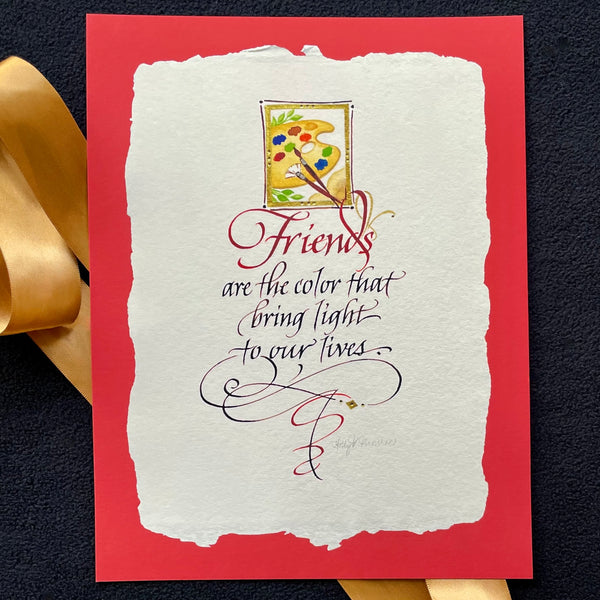 Friends
are the color that
bring light
to our lives.